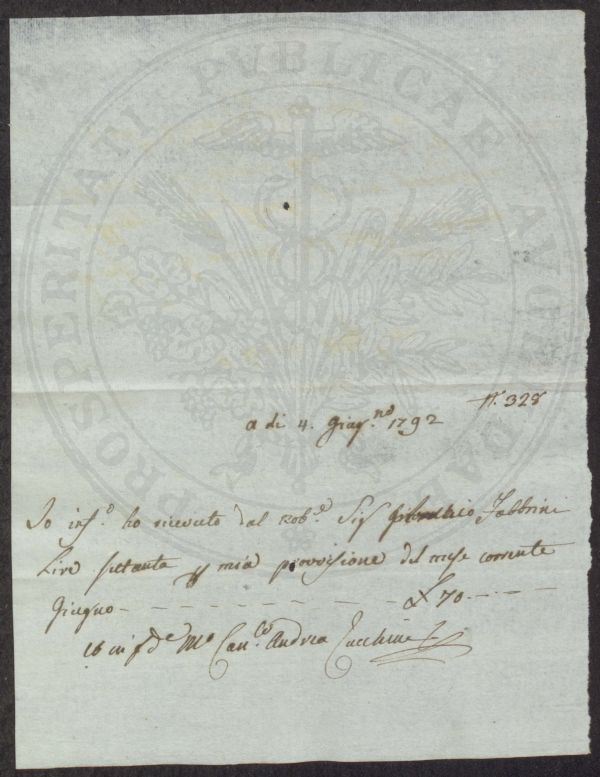 PROSPERITATI PVBLICAE AVGENDAE
N. 328
a di 4. Giug.no 1792
Io inf.o ho ricevuto dal Nob.e Sig Fabbrini
Lire settanta p mia provisione del mese corrente
Giugno - - - - - - - - - £ 70 - - -
Io in fede M.o Can.co Andrea